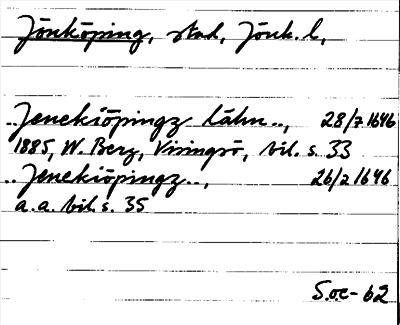 Jönköping, stad, Jönk. l,
..Jenekiöpingz lähn.., 28/7 1646
1885, W. Berg, Visingsö, bil. s. 33
..Jenekiöpingz.., 26/2 1646
a.a. bil. s. 35
S.oc-62